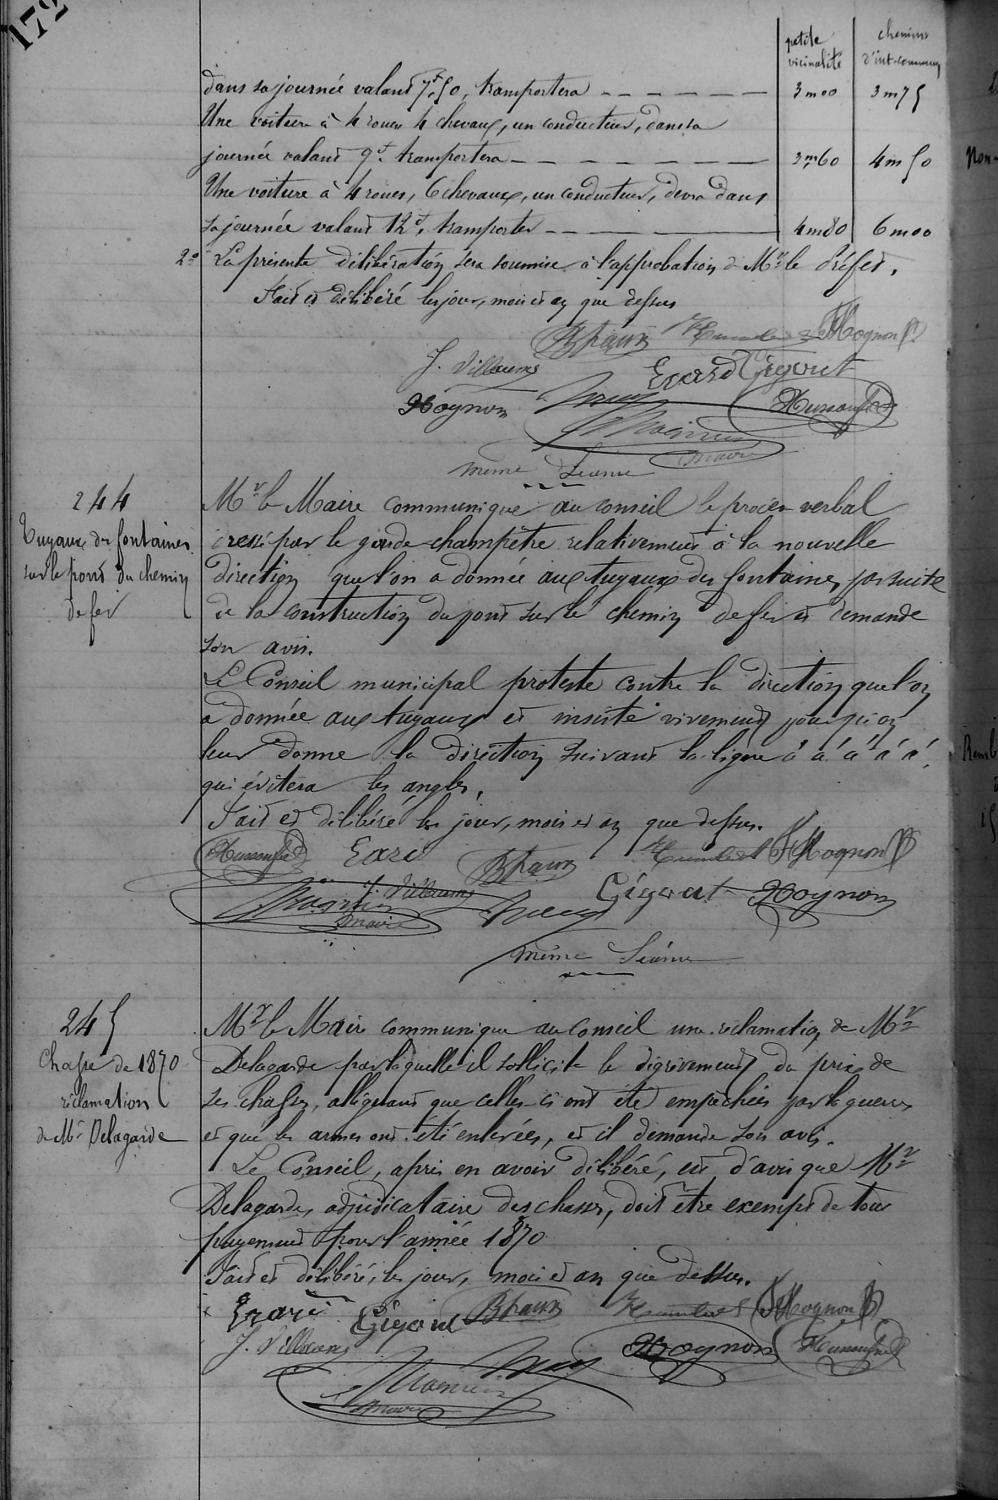 172
petite vicinalité
chemins d'int. commun
dans sa journée valant 7f,50, transportera 3m00 3m75
Une voiture à 4 roues 4 chevaux, un conducteur, dans sa
journée valant 9f. transportera 3m60 4m50
Une voiture à 4 roues, 6 chevaux, un conducteur, devra dans
sa journée valant 12f, transporter 4m80 6m00
2° La présente délibération sera soumise à l'approbation de Mr le Préfet.
Fait et délibéré les jour, mois et an que dessus
J. Villaume
Gégout
Hognon
maire
même Séance
244
Tuyaux des fontaines
sur le pont du chemin
de fer
Mr le Maire communique au conseil le procès-verbal
dressé par le garde-champêtre relativement à la nouvelle
direction que l'on a donnée aux tuyaux des fontaines, par suite
de la construction du pont sur le chemin de fer et demande
son avis.
Le Conseil municipal proteste contre la direction que l'on
a donnée aux tuyaux et insiste vivement pour qu'on
leur donne la direction suivant la ligne á á á á á,
qui évitera les angles.
Fait et délibéré les jour, mois et an que dessus.
J. Villaume
Gégout Hognon
maire
même Séance
245
Chasse de 1870
réclamation
de Mr Delagarde
Mr le Maire communique au conseil une réclamation de Mr
Delagarde par laquelle il sollicite le dégrèvement du prix de
ses chasses, alléguant que celles-ci ont été empêchées par la guerre
et que les armes ont été enlevées, et il demande son avis.
Le Conseil, après en avoir délibéré, est d'avis que Mr
Delagarde, adjudicataire des chasses, doit être exempt de tout
payement pour l'année 1870
Fait et délibéré, les jour, mois et an que dessus.
Gégout
J. Villaume
Hognon
maire